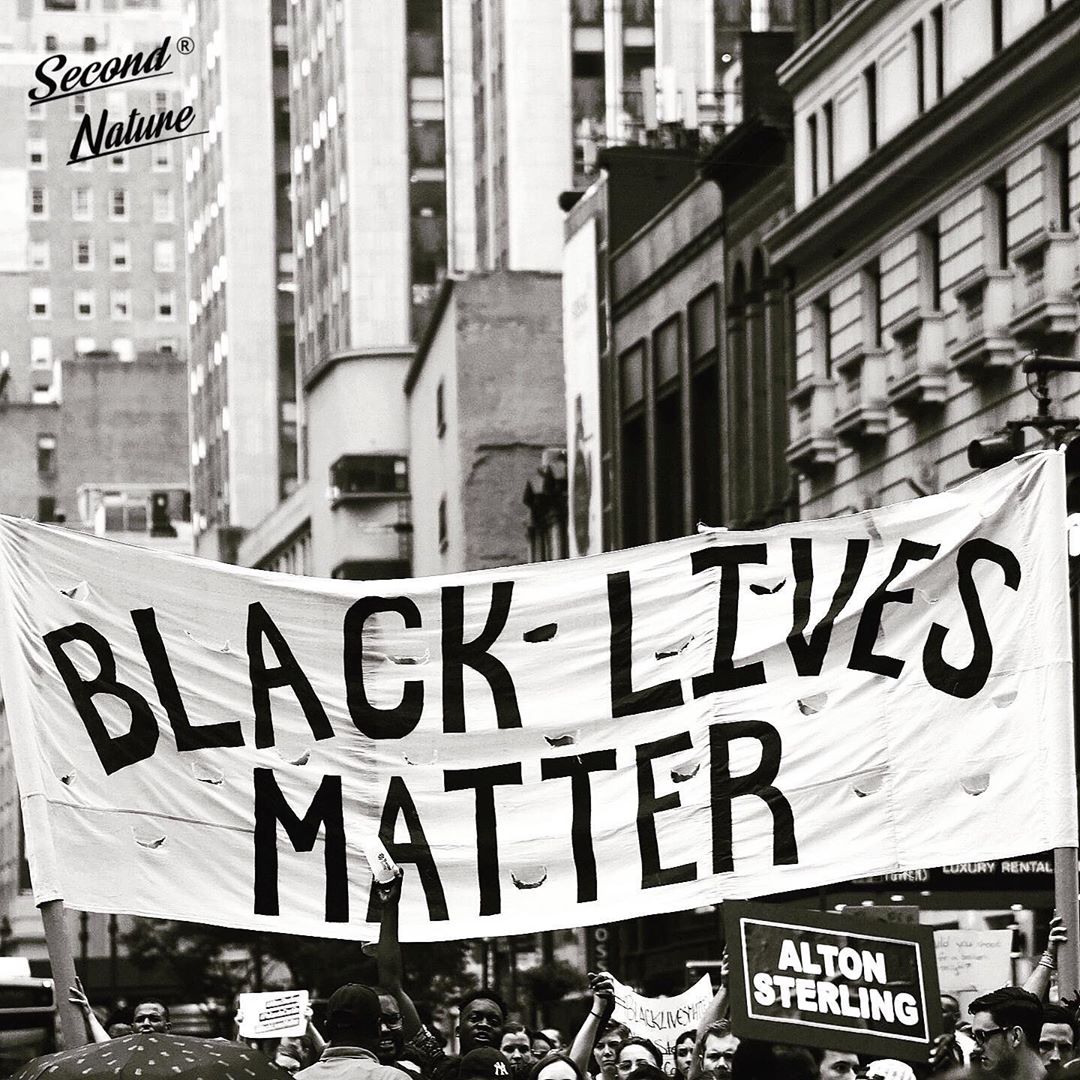 Second®
Nature
BLACK LIVES
MATTER
LUXURY RENTAL
ALTON
STERLING
BLACKLIVES